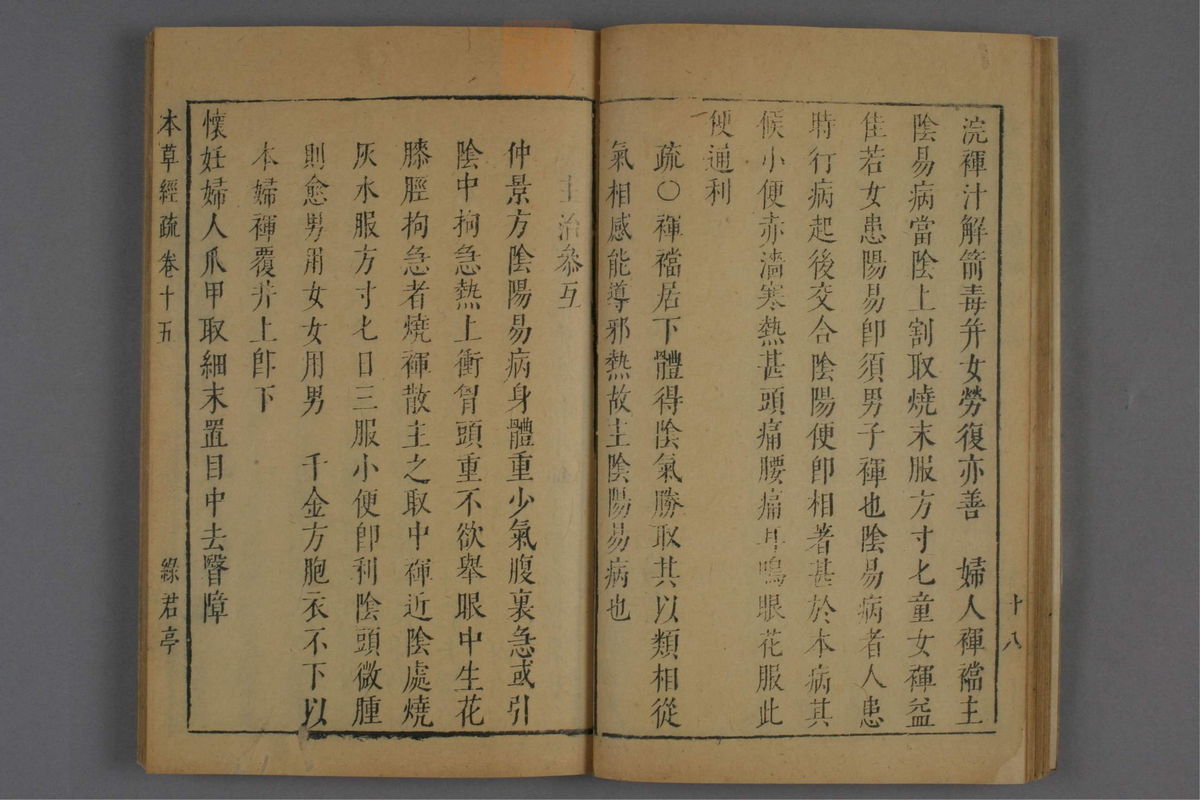 浣褌汁解箭毒并女勞復亦善　婦人褌襠主
陰易病當陰上割取燒末服方寸匕童女褌益
佳若女患陽易卽須男子褌也陰易病者人患
時行病起後交合陰陽便卽相著甚於本病其
候小便赤濇寒熱甚頭痛腰痛耳鳴眼花服此
便通利
疏○褌襠居下體得陰氣勝取其以類相從
氣相感能導邪熱故主陰陽易病也
十八
主治叅互
仲景方陰陽易病身體重少氣腹裏急或引
陰中拘急熱上衝胷頭重不欲舉眼中生花
膝脛拘急者燒褌散主之取中褌近陰處燒
灰水服方寸匕日三服小便卽利陰頭微腫
則愈男用女女用男　千金方胞衣不下以
本婦褌覆井上卽下
懷妊婦人爪甲取細末置目中去瞖障
本草經疏卷十五　綠君亭